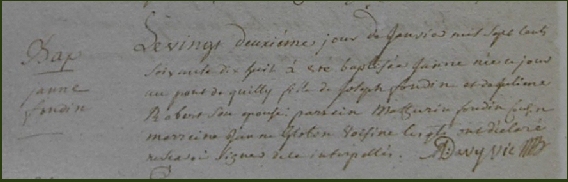 Bap
janne
fondin
Le vingt deuxiéme jour de Janvier mil sept cent
soixante dix huit à été baptisée janne née ce jour
au pont de quilly fille de joseph fondin et de
Robert son epouse parrein Mathurin fondin
marreine janne voisine lesquels ont déclaré
ne savoir signer de ce interpellés. Davy Vic